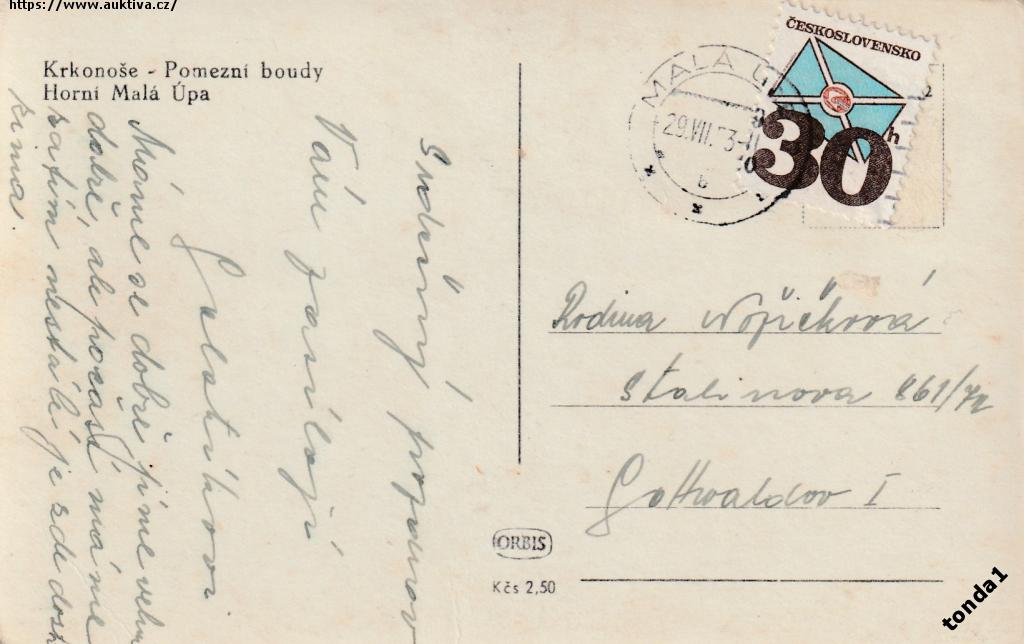 https://www.auktiva.cz/
Krkonoše - Pomezní boudy
Horní Malá Úpa
Srdečný pozdrav
Vám zasílají
Máme se dobře jíme velmi
dobře, ale počasí máme
zatím nestálé je zde dost
zima.
ČESKOSLOVENSKO
30 h
MALÁ Ú
29.VII.53-11
b
Rodina
Stalinova 861/72
Gottwaldov I
ORBIS
Kčs 2,50
tonda1